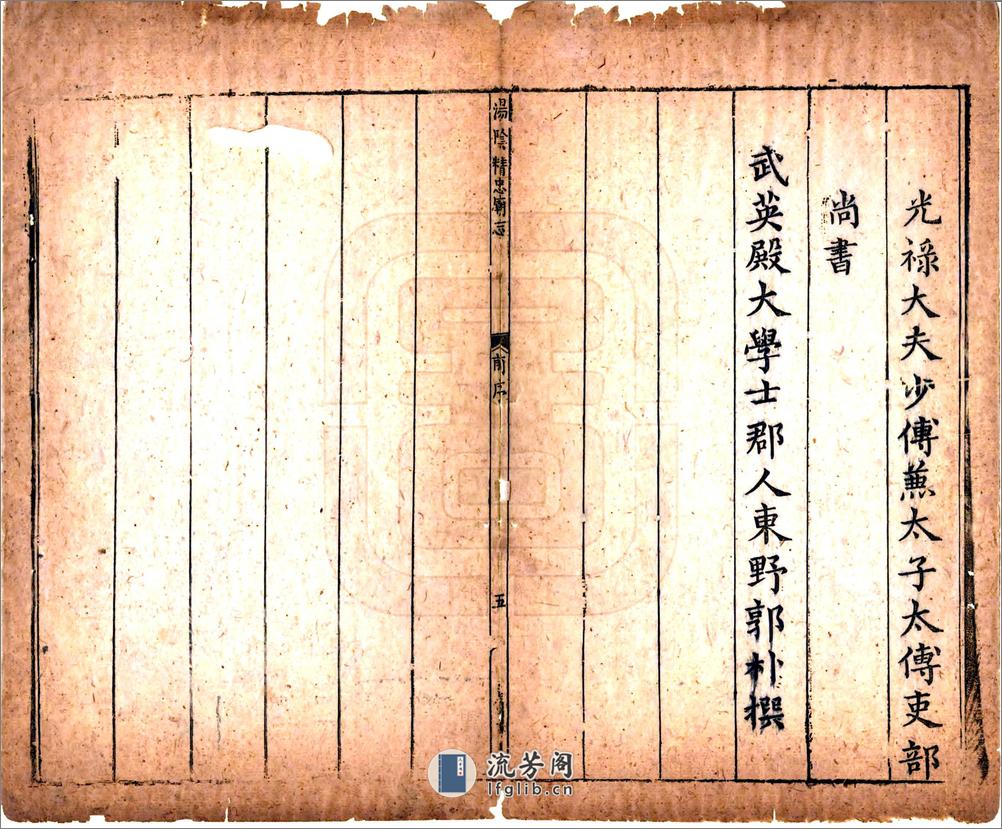 光祿大夫少傅蕪太子太傅吏部
尚書
武英殿大學士郡人東野郭朴撰
湯陰精忠廟志
前序
五
流芳阁
lfglib.cn